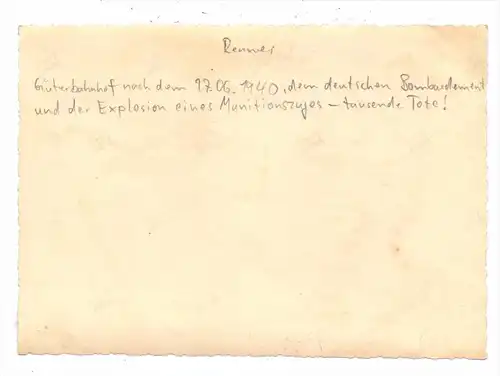 Rennes
Güterbahnhof nach dem 17.06.1940, dem deutschen Bombardement
und der Explosion eines Munitionszuges – tausende Tote!